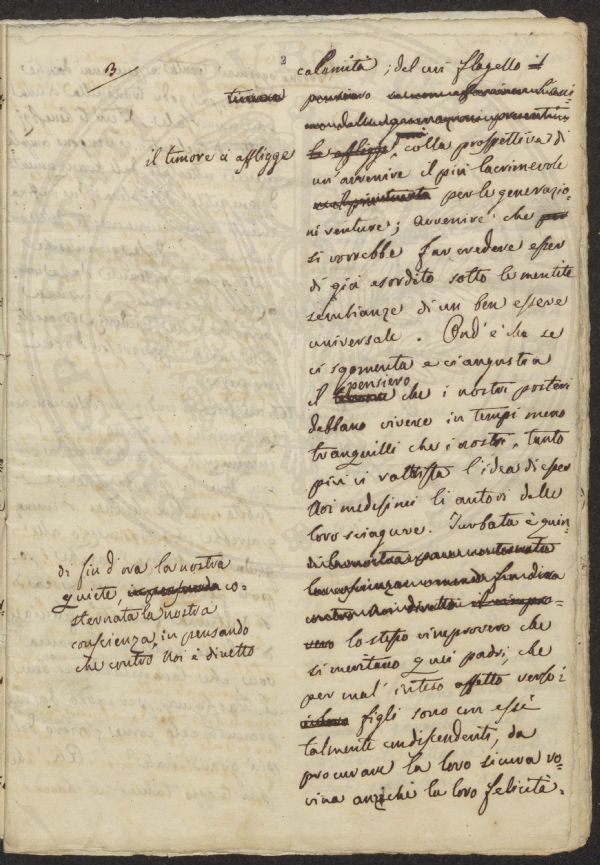 3
2
calamità; del cui flagello il
timore pensiero
il timore ci affligge
la affligge colla prospettiva di
un' avvenire il più lacrimevole
per le generazio-
ni venture; avvenire che per
si vorrebbe far credere esser
di già esordito sotto le mentite
sembianze di un ben essere
universale. Ond' è che se
ci sgomenta e ci angustia
il pensiero che i nostri posteri
debbano vivere in tempi meno
tranquilli che i nostri, tanto
più ci rattrista l'idea di esser
Noi medesimi li autori delle
loro sciagure. Turbata è quin-
di fin d'ora la nostra
quiete, co-
sternata la nostra
coscienza, in pensando
che contro Noi è diretto
lo stesso rimprovero che
si meritano quei padri, che
per mal' inteso affetto verso i
figli sono con essi
talmente condiscendenti, da
procurare la loro sicura ro-
vina anzichè la loro felicità.